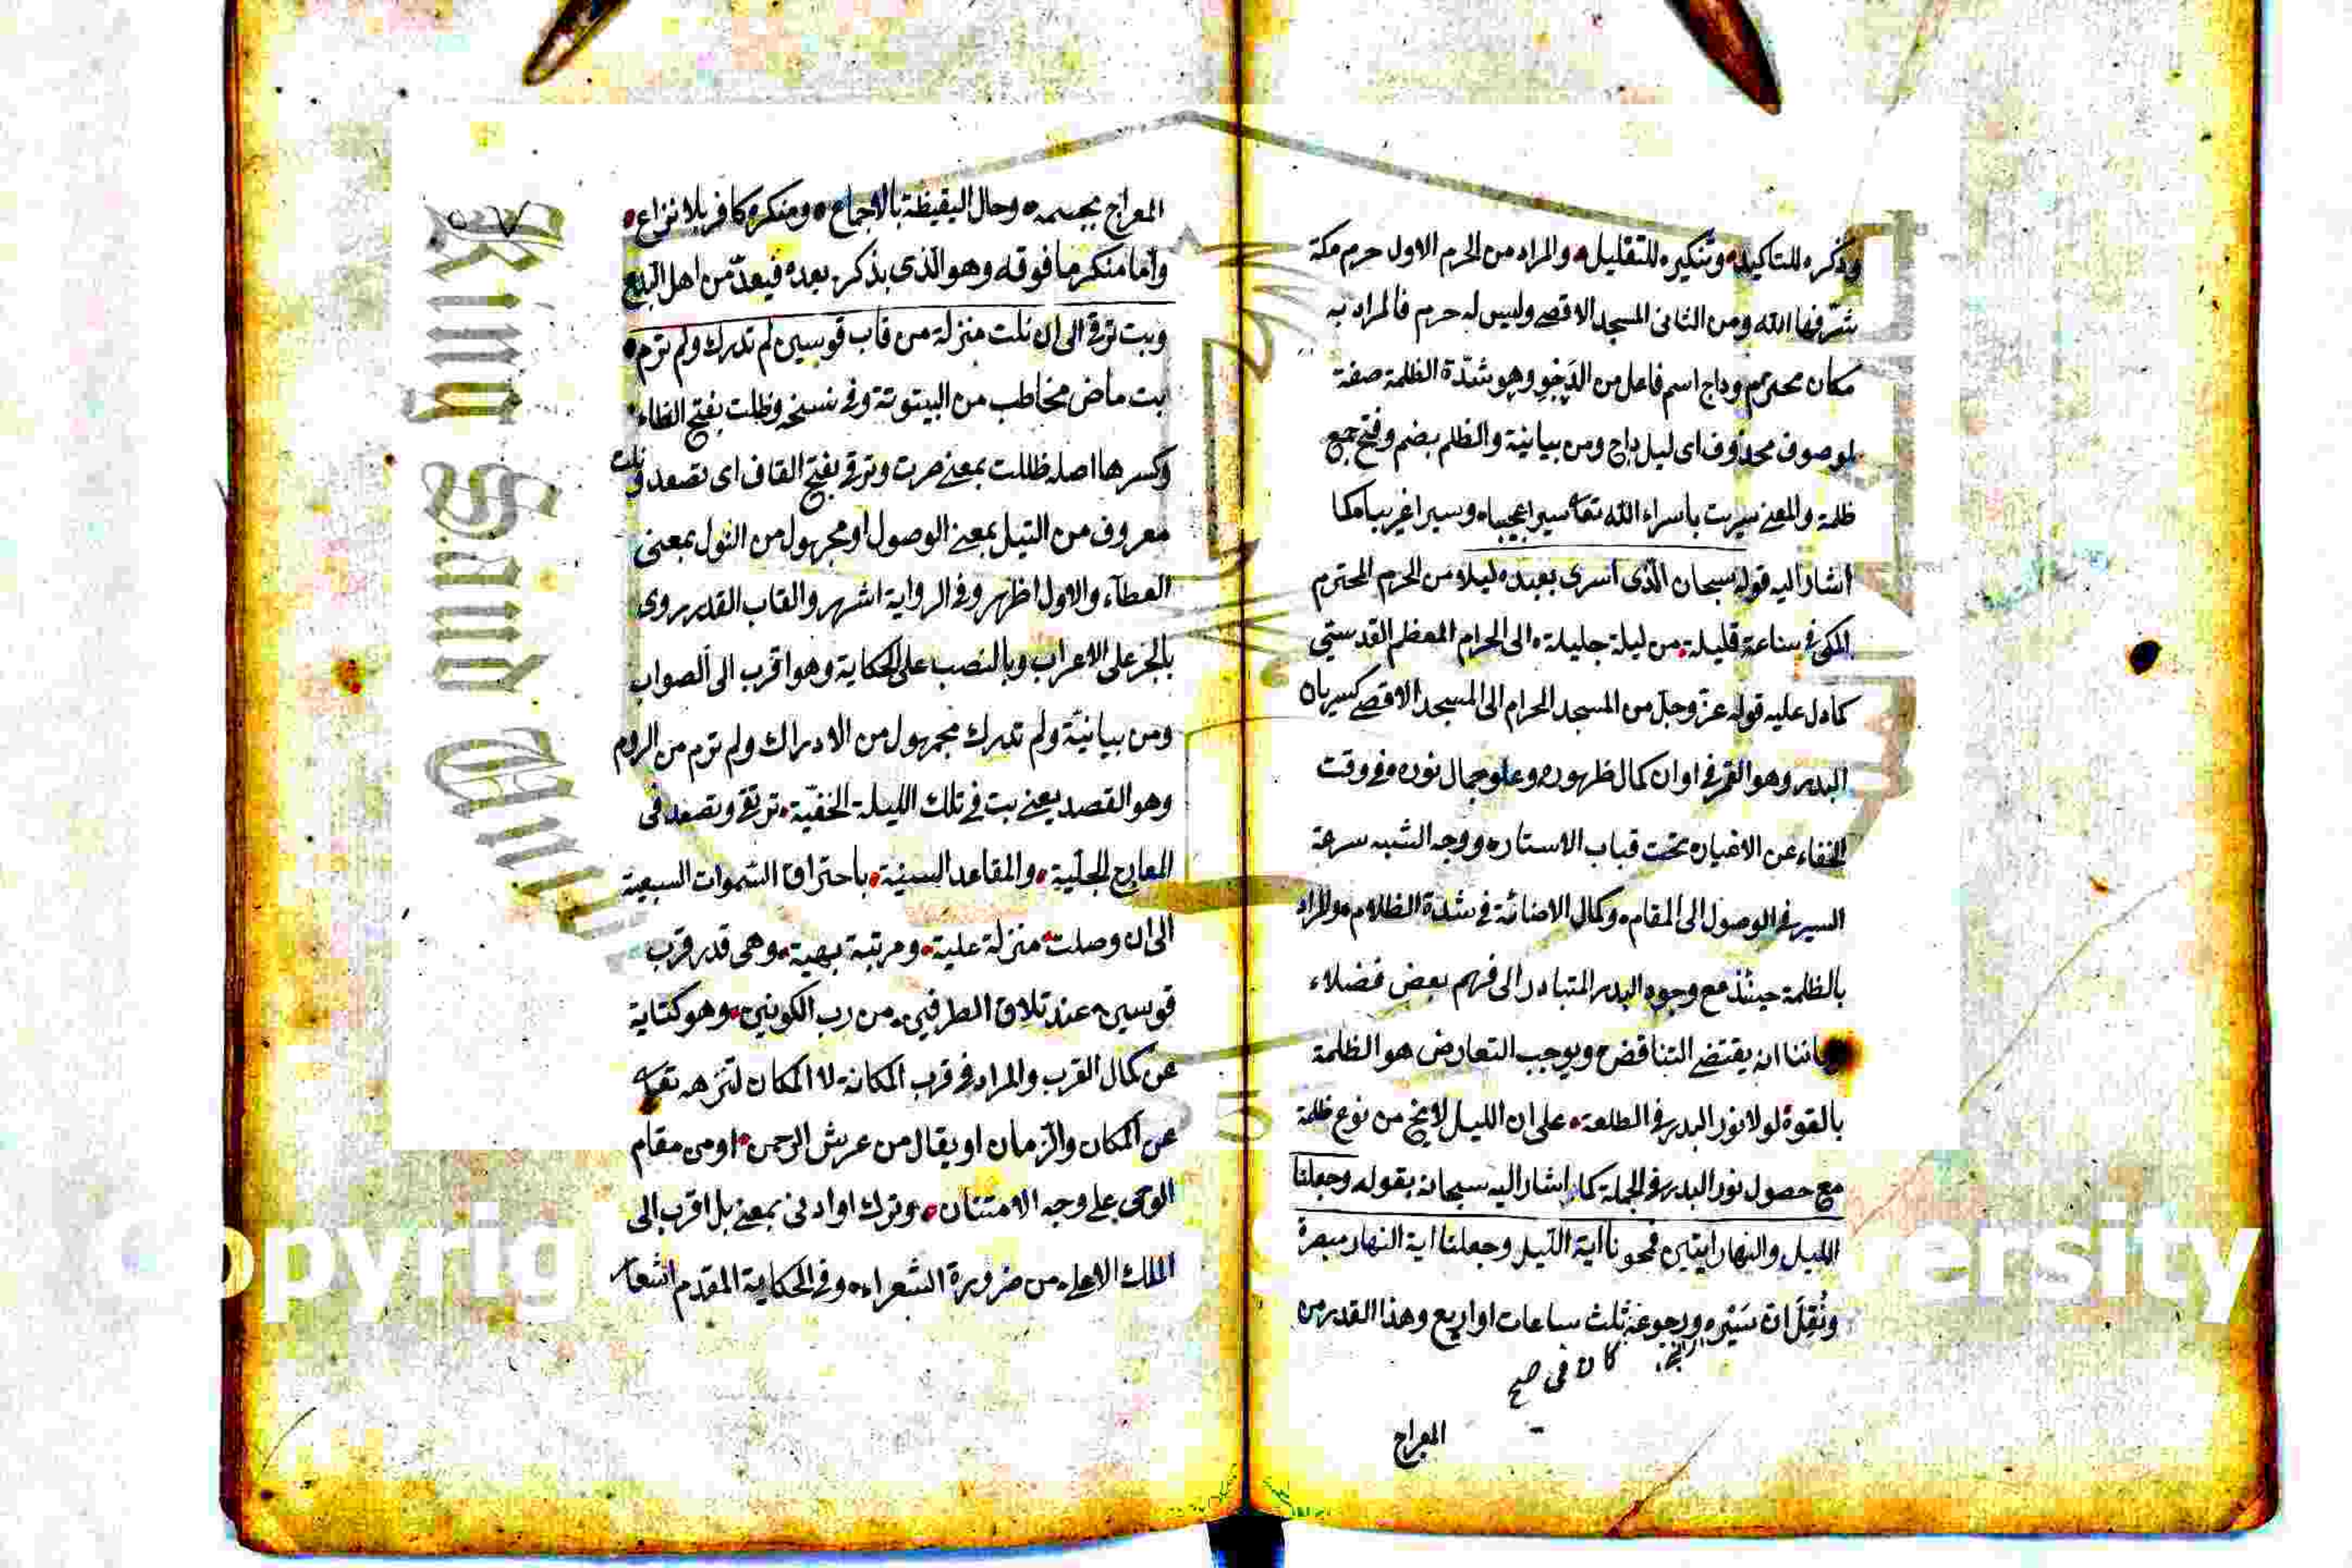 وذكره للتاكيد وتنكيره للتقليل والمراد من الحرم الاول حرم مكة
شرفها الله ومن الثانى المسجد الاقصى وليس له حرم فالمراد به
مكان محترم وداج اسم فاعل من الدَجْو وهو شدّة الظلمة صفة
لموصوف محذوف اى ليل داج ومن بيانية والظلم بضم وفتح جمع
ظلمة والمعنى سريت باسراء الله تعا سيرا عجيبا وسيرا غريبا كما
اشار اليه قوله سبحان الذى اسرى بعبده ليلا من الحرم المحترم
المكى فى ساعة قليلة من ليلة جليلة الى الحرام المعظم القدستي
كما دل عليه قوله عزّ وجلّ من المسجد الحرام الى المسجد الاقصى كسريان
البدر وهو القمر فى اوان كمال ظهوره وعلو جمال نوره وفى وقت
الخفاء عن الاغيار تحت قباب الاستار ووجه الشبه سرعة
السير فى الوصول الى المقام وكمال الاضائة فى شدة الظلام والمراد
بالظلمة حينئذ مع وجود البدر المتبادر الى فهم بعض فضلاء
زماننا ان يقتضى التناقض ويوجب التعارض هو الظلمة
بالقوة لولا نور البدر فى الطلعة على ان الليل لا يخ من نوع ظلمة
مع حصول نور البدر فى الجملة كما اشار اليه سبحانه بقوله وجعلنا
الليل والنهار ايتين فمحونا اية الليل وجعلنا اية النهار مبصرة
ونُقِلَ ان سَيْره ورجوعه ثلث ساعات او اربع وهذا القدر من
كان فى صح
المعراج
المعراج بجسمه وحال اليقيظة بالاجماع ومنكره كافر بلا نزاع
واما منكر ما فوقه وهو الذى يذكر بعده فيعدّ من اهل البدع
وبت ترقى الى ان نلت منزلة من قاب قوسين لم تدرك ولم ترم
بت ماض مخاطب من البيتوتة وفى نسخه وظلت بفتح الظاء
وكسرها اصله ظللت بمعنى صرت وترقى بفتح القاف اى تصعد ونلت
معروف من النيل بمعنى الوصول او مجهول من النول بمعنى
العطاء والاول اظهر وفى الرواية اشهر والقاب القدر روى
بالجر على الاعراب وبالنصب على الحكاية وهو اقرب الى الصواب
ومن بيانيّة ولم تدرك مجهول من الادراك ولم ترم من الروم
وهو القصد يعنى بت فى تلك الليلة الخفيّة ترتقى وتصعد فى
المعارج الجليّة والمقاعد السنية باحتراق السموات السبعية
الى ان وصلت منزلة علية ومرتبة بهية وهى قدر قرب
قوسين عند تلاق الطرفين من رب الكونين وهو كناية
عن كمال القرب والمراد فى قرب المكانة لا المكان لتنزهه تعا
عن المكان والزمان او يقال من عرش الرحمن او من مقام
الوحى على وجه الامتنان وترك او ادنى بمعنى بل اقرب الى
الملك الاعلى من ضرورة الشعراء وفى الحكاية المقدم اشعار
King Saud
opyrig
ersity